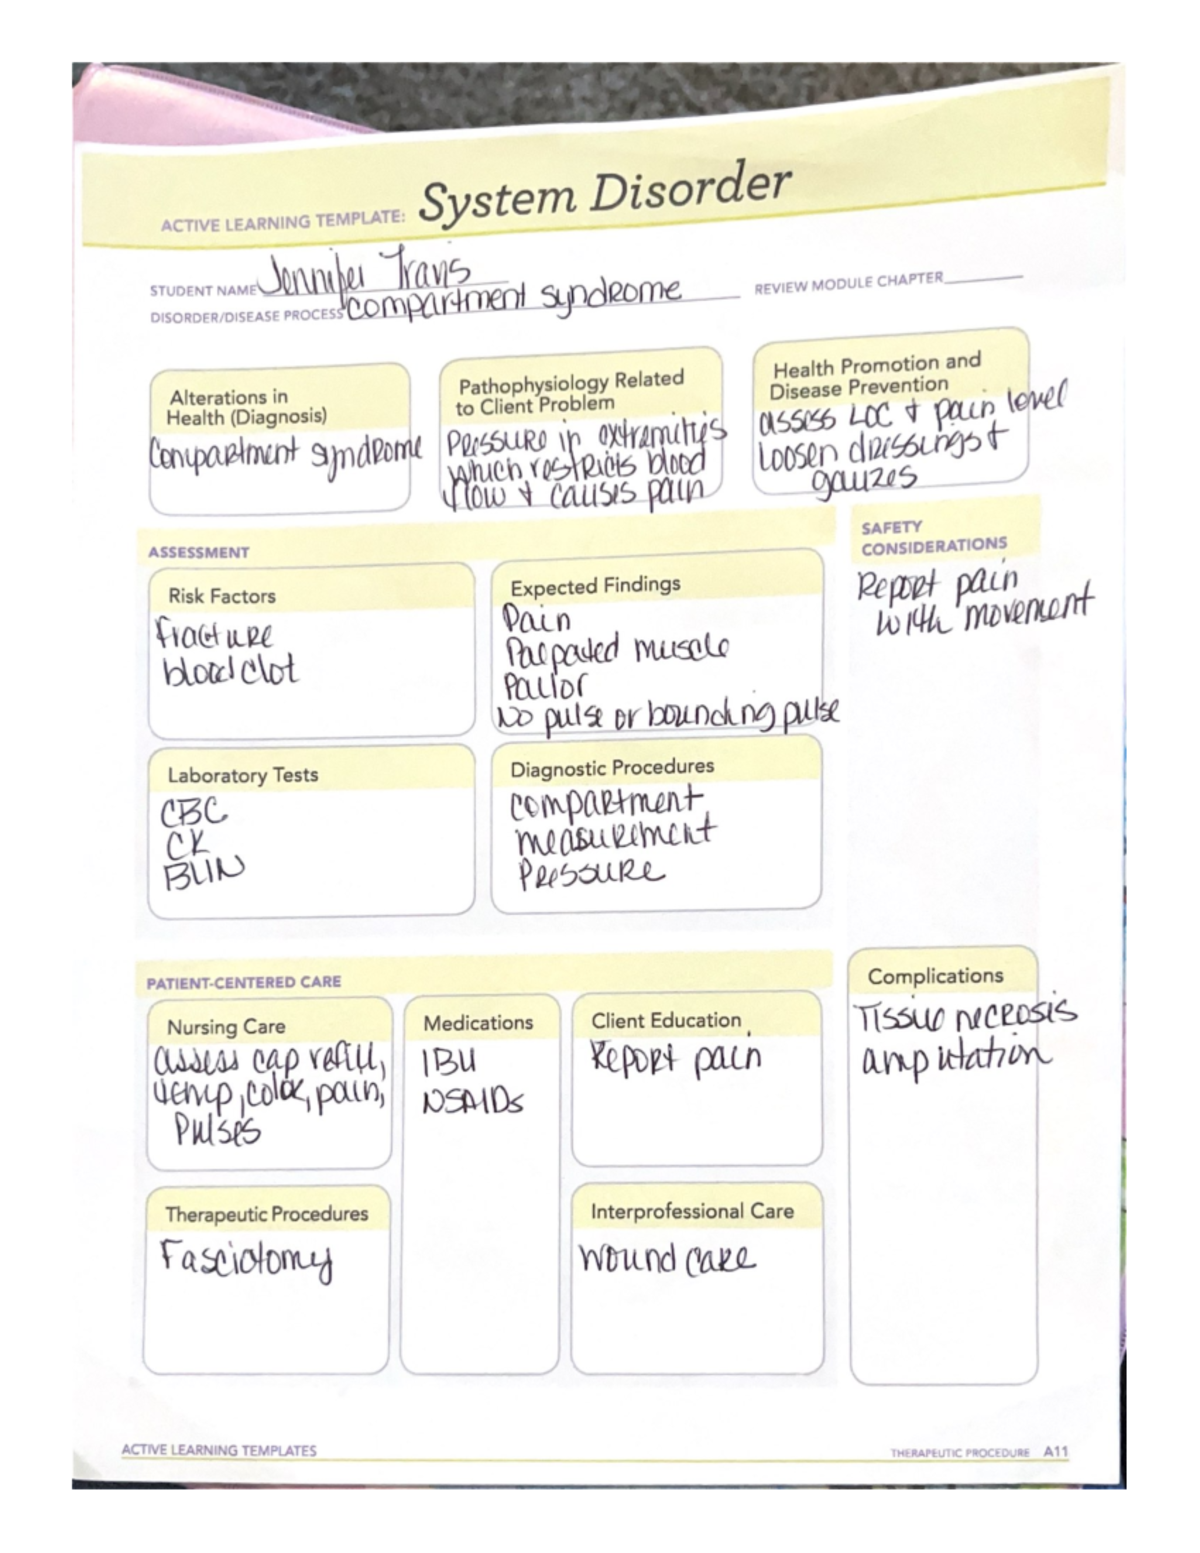 ACTIVE LEARNING TEMPLATE: System Disorder
STUDENT NAME Jennifer Travis
DISORDER/DISEASE PROCESS compartment syndrome
REVIEW MODULE CHAPTER
Alterations in
Health (Diagnosis)
Compartment syndrome
Pathophysiology Related
to Client Problem
Pressure in extremities
which restricts blood
flow + causes pain
Health Promotion and
Disease Prevention
assess LOC + pain level
Loosen dressings +
gauzes
ASSESSMENT
SAFETY
CONSIDERATIONS
Report pain
with movement
Risk Factors
fracture
blood clot
Expected Findings
Pain
Palpated muscle
Pallor
No pulse or bounding pulse
Laboratory Tests
CBC
CK
BUN
Diagnostic Procedures
compartment
measurement
Pressure
PATIENT-CENTERED CARE
Nursing Care
assess cap refill,
temp, color, pain,
Pulses
Medications
IBU
NSAIDs
Client Education
Report pain
Complications
Tissue necrosis
amputation
Therapeutic Procedures
Fasciotomy
Interprofessional Care
wound care
ACTIVE LEARNING TEMPLATES
THERAPEUTIC PROCEDURE A11